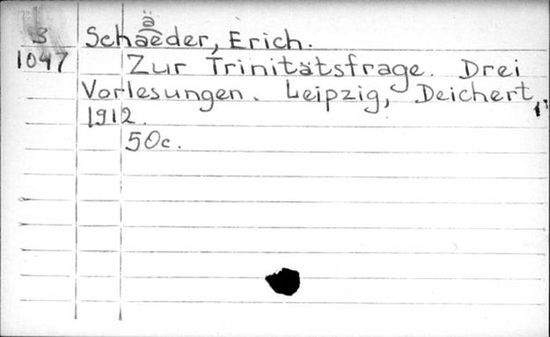 ä
3 Schaeder, Erich.
1047 Zur Trinitätsfrage. Drei
Vorlesungen. Leipzig, Deichert,
1912.
50c.